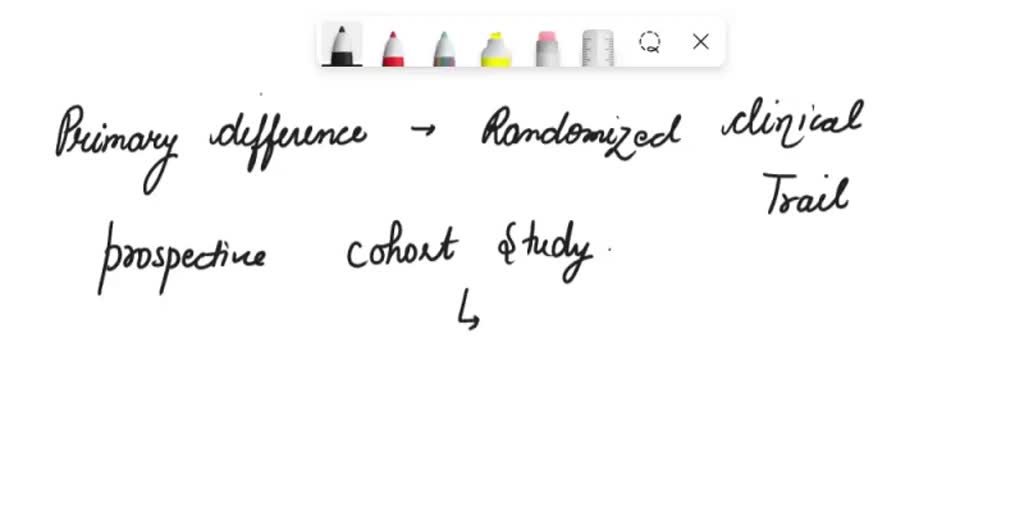 Primary difference → Randomized clinical
Trail
prospective cohort study.
↳